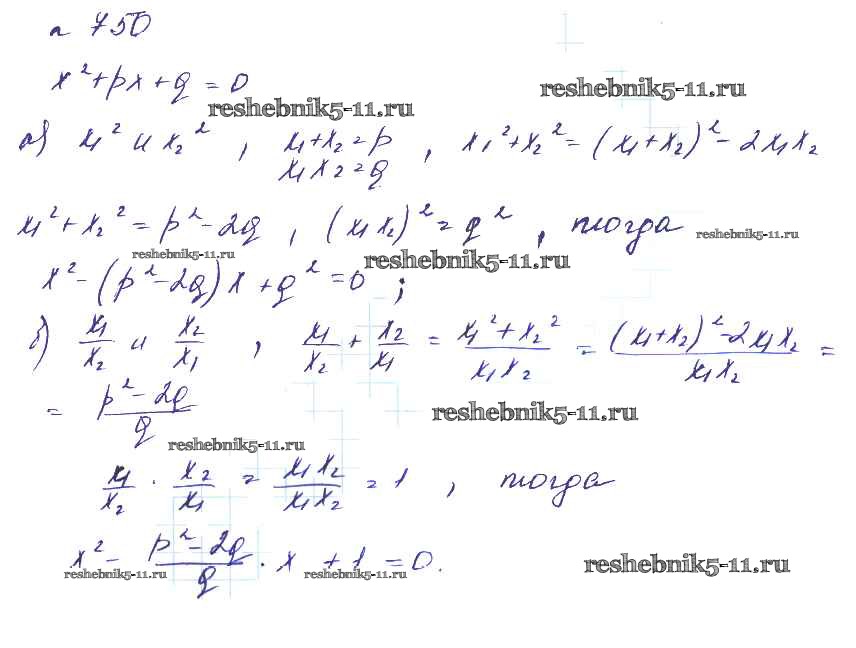 n 750
x² + px + q = 0
reshebnik5-11.ru reshebnik5-11.ru
а) x₁² и x₂² , x₁+x₂ = p , x₁² + x₂² = (x₁+x₂)² - 2x₁x₂
x₁x₂ = q
x₁² + x₂² = p² - 2q , (x₁x₂)² = q² , тогда reshebnik5-11.ru
reshebnik5-11.ru reshebnik5-11.ru
x² - (p² - 2q)x + q² = 0 ;
б) x₁/x₂ и x₂/x₁ , x₁/x₂ + x₂/x₁ = (x₁² + x₂²)/(x₁x₂) = ((x₁+x₂)² - 2x₁x₂)/(x₁x₂) =
= (p² - 2q)/q reshebnik5-11.ru
reshebnik5-11.ru
x₁/x₂ · x₂/x₁ = (x₁x₂)/(x₁x₂) = 1 , тогда
x² - (p² - 2q)/q · x + 1 = 0.
reshebnik5-11.ru reshebnik5-11.ru reshebnik5-11.ru